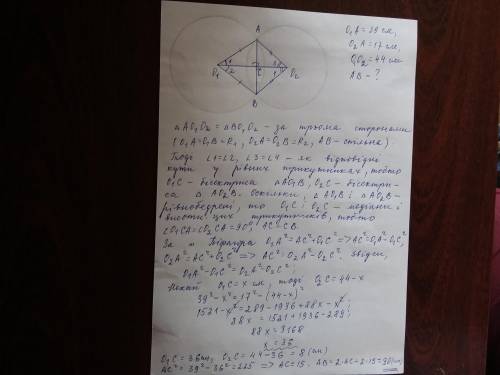 A
O₁
C
O₂
B
1
2
3
4
O₁A = 39 см,
O₂A = 17 см,
O₁O₂ = 44 см
AB - ?
△AO₁O₂ = △BO₁O₂ - за трьома сторонами
(O₁A = O₁B = R₁, O₂A = O₂B = R₂, AB - спільна)
Тоді ∠1=∠2, ∠3=∠4 - як відповідні
кути у рівних трикутниках, тобто
O₁C - бісектриса △AO₁B, O₂C - бісектри-
са △AO₂B. Оскільки, △AO₁B і △AO₂B -
рівнобедрені, то O₁C і O₂C - медіани і
висоти цих трикутників, тобто
∠O₁CA = ∠O₂CA = 90°, AC = CB.
За т. Піфагора O₁A² = AC² + O₁C² => AC² = O₁A² - O₁C²,
O₂A² = AC² + O₂C² => AC² = O₂A² - O₂C². Звідси,
O₁A² - O₁C² = O₂A² - O₂C².
Нехай O₁C = x см, тоді O₂C = 44 - x
39² - x² = 17² - (44 - x)²
1521 - x² = 289 - 1936 + 88x - x²;
88x = 1521 + 1936 - 289;
88x = 3168
x = 36
O₁C = 36 см, O₂C = 44 - 36 = 8 (см)
AC² = 39² - 36² = 225 => AC = 15. AB = 2·AC = 2·15 = 30 (см)